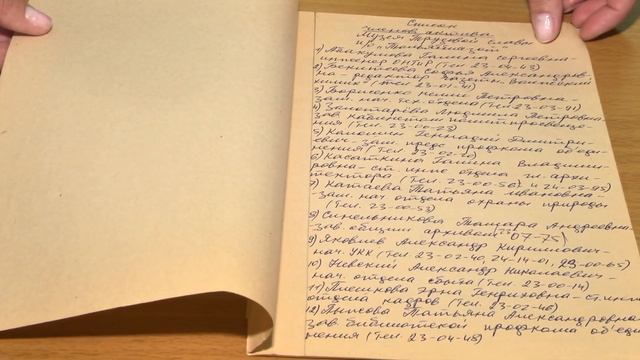 Список
членов актива
Музея Трудовой Славы
п/о "Тольяттиазот"
1) Абакумова Галина Сергеевна -
инженер ОНТиР (Тел. 23-04-43)
2) Бекитеева Софья Александров-
на - редактор газеты "
химик" (Тел. 23-01-41)
3) Борисенко Нелли Петровна -
зам. нач. тех. отдела (Тел. 23-03-91)
4) Золотарёва Людмила Петровна -
зав. кабинетом политпросвеще-
ния (Тел. 23-00-23)
5) Калошин Геннадий Дмитри-
евич - зам. пред. профкома объеди-
нения (Тел. 23-02-20)
6) Касаткина Галина Владими-
ровна - ст. инж. отдела гл. архи-
тектора (Тел. 23-00-56 и 24-03-95)
7) Катаева Татьяна Ивановна
- зам. нач. отдела охраны природы
(Тел. 23-00-53)
8) Синельникова Тамара Андреевна -
зав. общим архивом 07-75)
9) Яковлев Александр Кириллович -
нач. УКК (Тел. 23-02-40, 24-14-01, 23-00-65)
10) Невский Александр Николаевич -
нач. отдела сбыта (Тел. 23-00-14)
11) Плешкова Эрна Генриховна - ст. инж.
отдела кадров (Тел. 23-02-46)
12) Татьяна Александровна
зав. библиотекой профкома объе-
нения (Тел. 23-04-48)